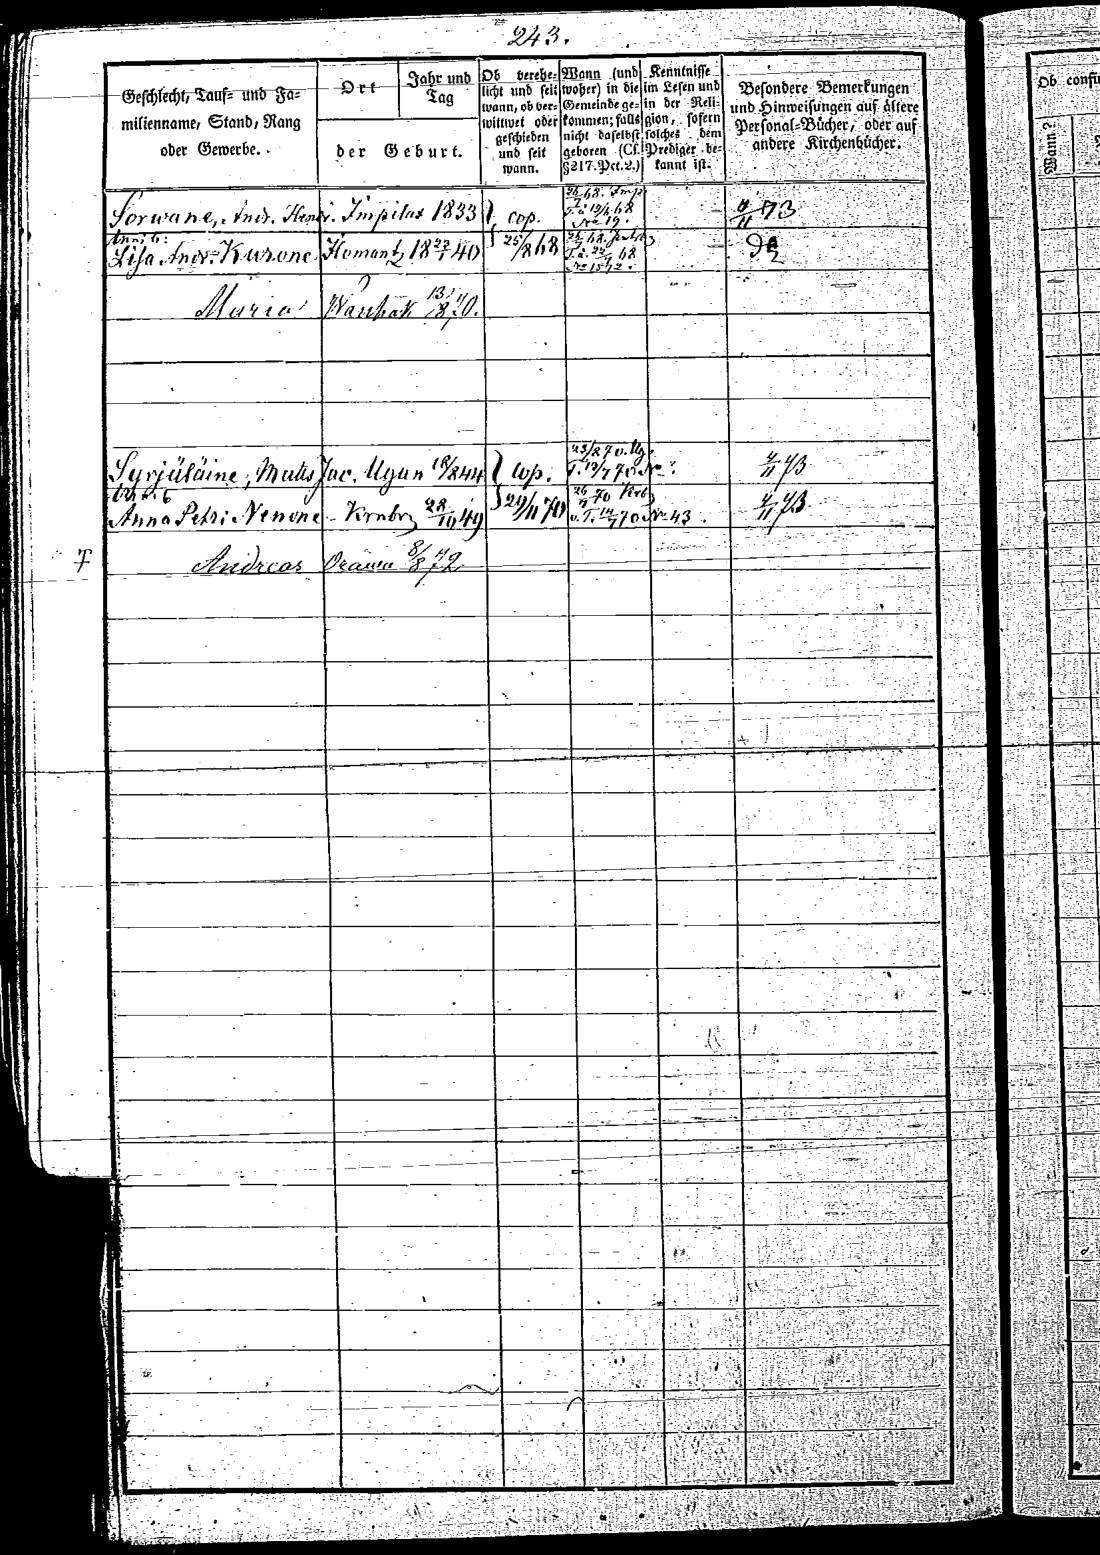 243.
Geschlecht, Tauf- und Fa-
milienname, Stand, Rang
oder Gewerbe.
Ort
Jahr und
Tag
der Geburt.
Ob verehe-
licht und seit
wann, ob ver-
wittwet oder
geschieden
und seit
wann.
Wann (und
woher) in die
Gemeinde ge-
kommen; falls
nicht daselbst
geboren (Cf.
§217. Pct. 2.)
Kenntnisse
im Lesen und
in der Reli-
gion, sofern
solches dem
Prediger be-
kannt ist.
Besondere Bemerkungen
und Hinweisungen auf ältere
Personal-Bücher, oder auf
andere Kirchenbücher.
Sorwane, Andr. Henr. Impilax 1833 cop. 26/7 68. Imp. 4/11 73
No 19.
Lisa Andr. Kurone Ilomantz 18 22/1 40 25/8 68
Maria 13/4 1870.
Syrjäläine, Matts Jac. Ugun 18/8 44 cop. 4/11 73
Anna Petri Nenone Krnbrg 28/10 49 24/11 70 26/9 70 Krbg 4/11 73
No 43.
Andreas 8/8 72
Ob confir
Wann?